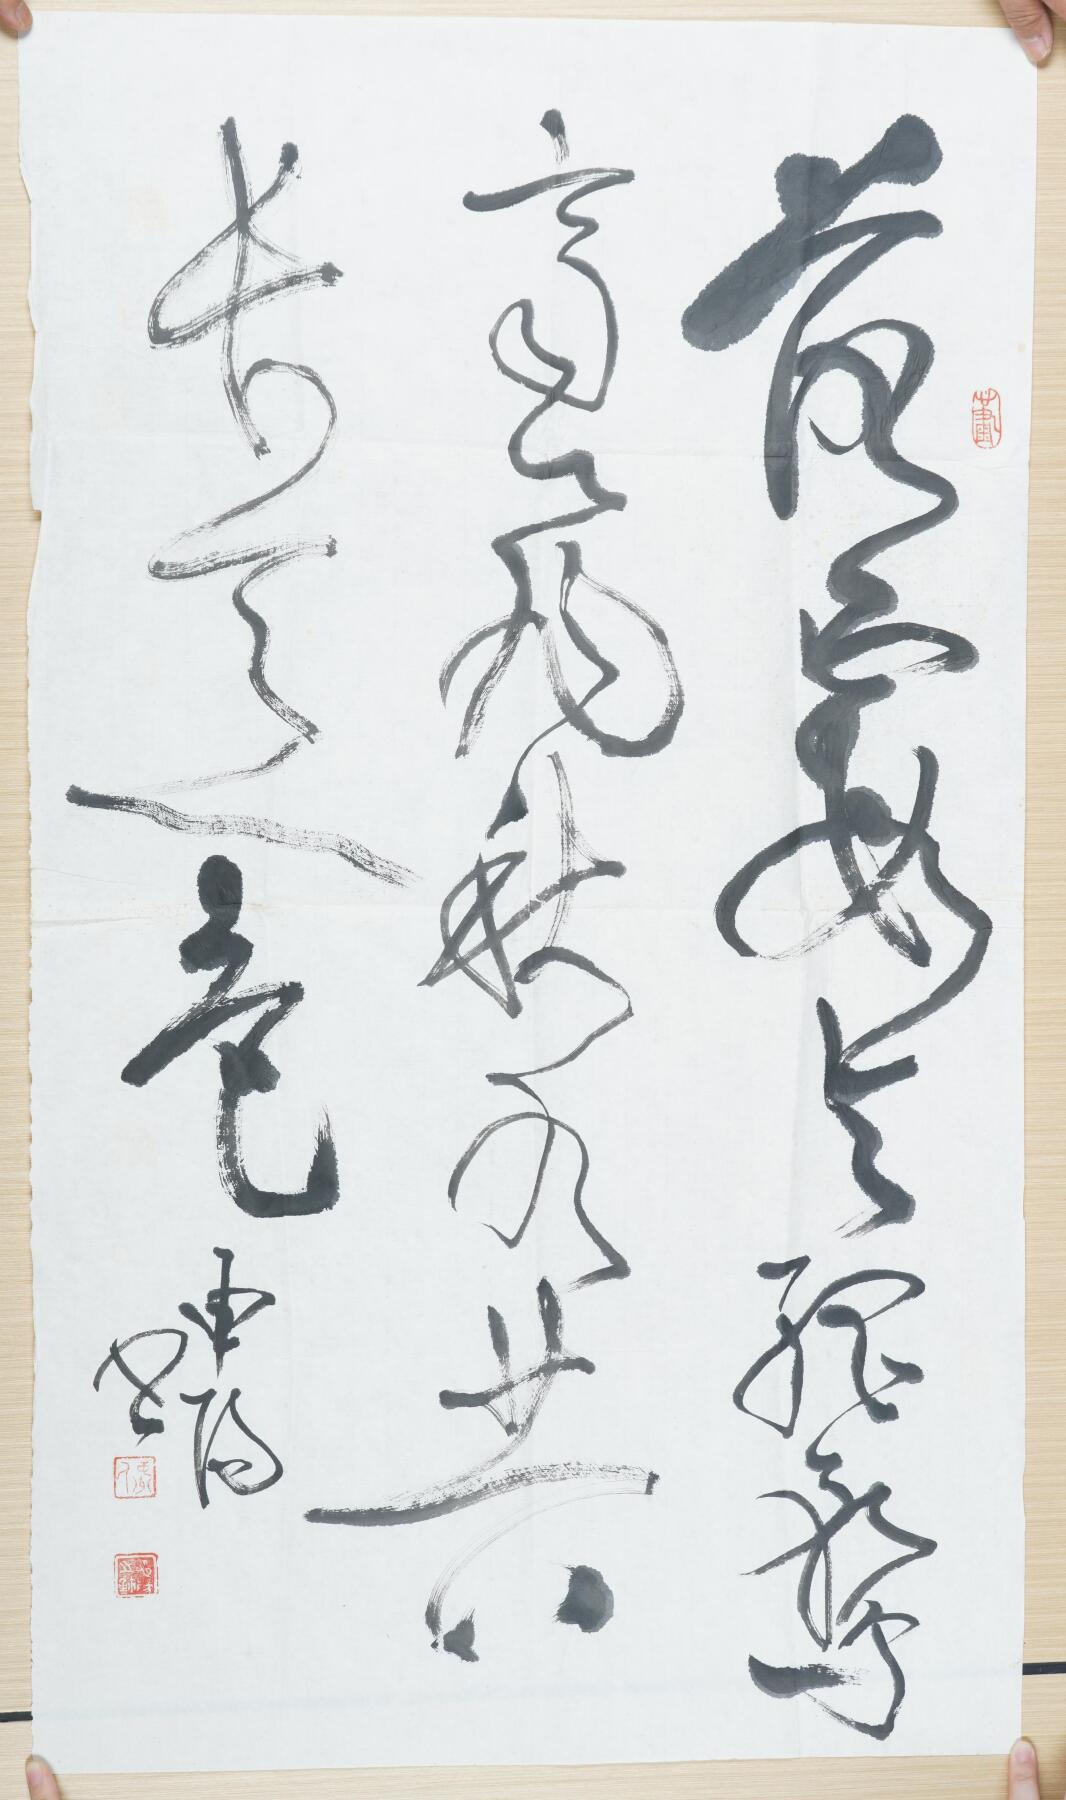 落霞与孤鹜
齐飞秋水共
长天一色
中阳
书